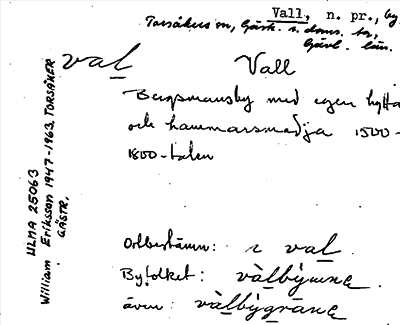 Vall, n. pr., by
Torsåkers sn, Gästr. s. doms. to,
Gävl. län.
val Vall
Bergsmansby med egen hytta
och hammarsmedja 1500-
1800-talen
Ortbestämn: i val
Byfolket: vàlbýmna
även: vàlbýgrana
ULMA 25063
William Eriksson 1947-1963, TORSÅKER
GÄSTR.